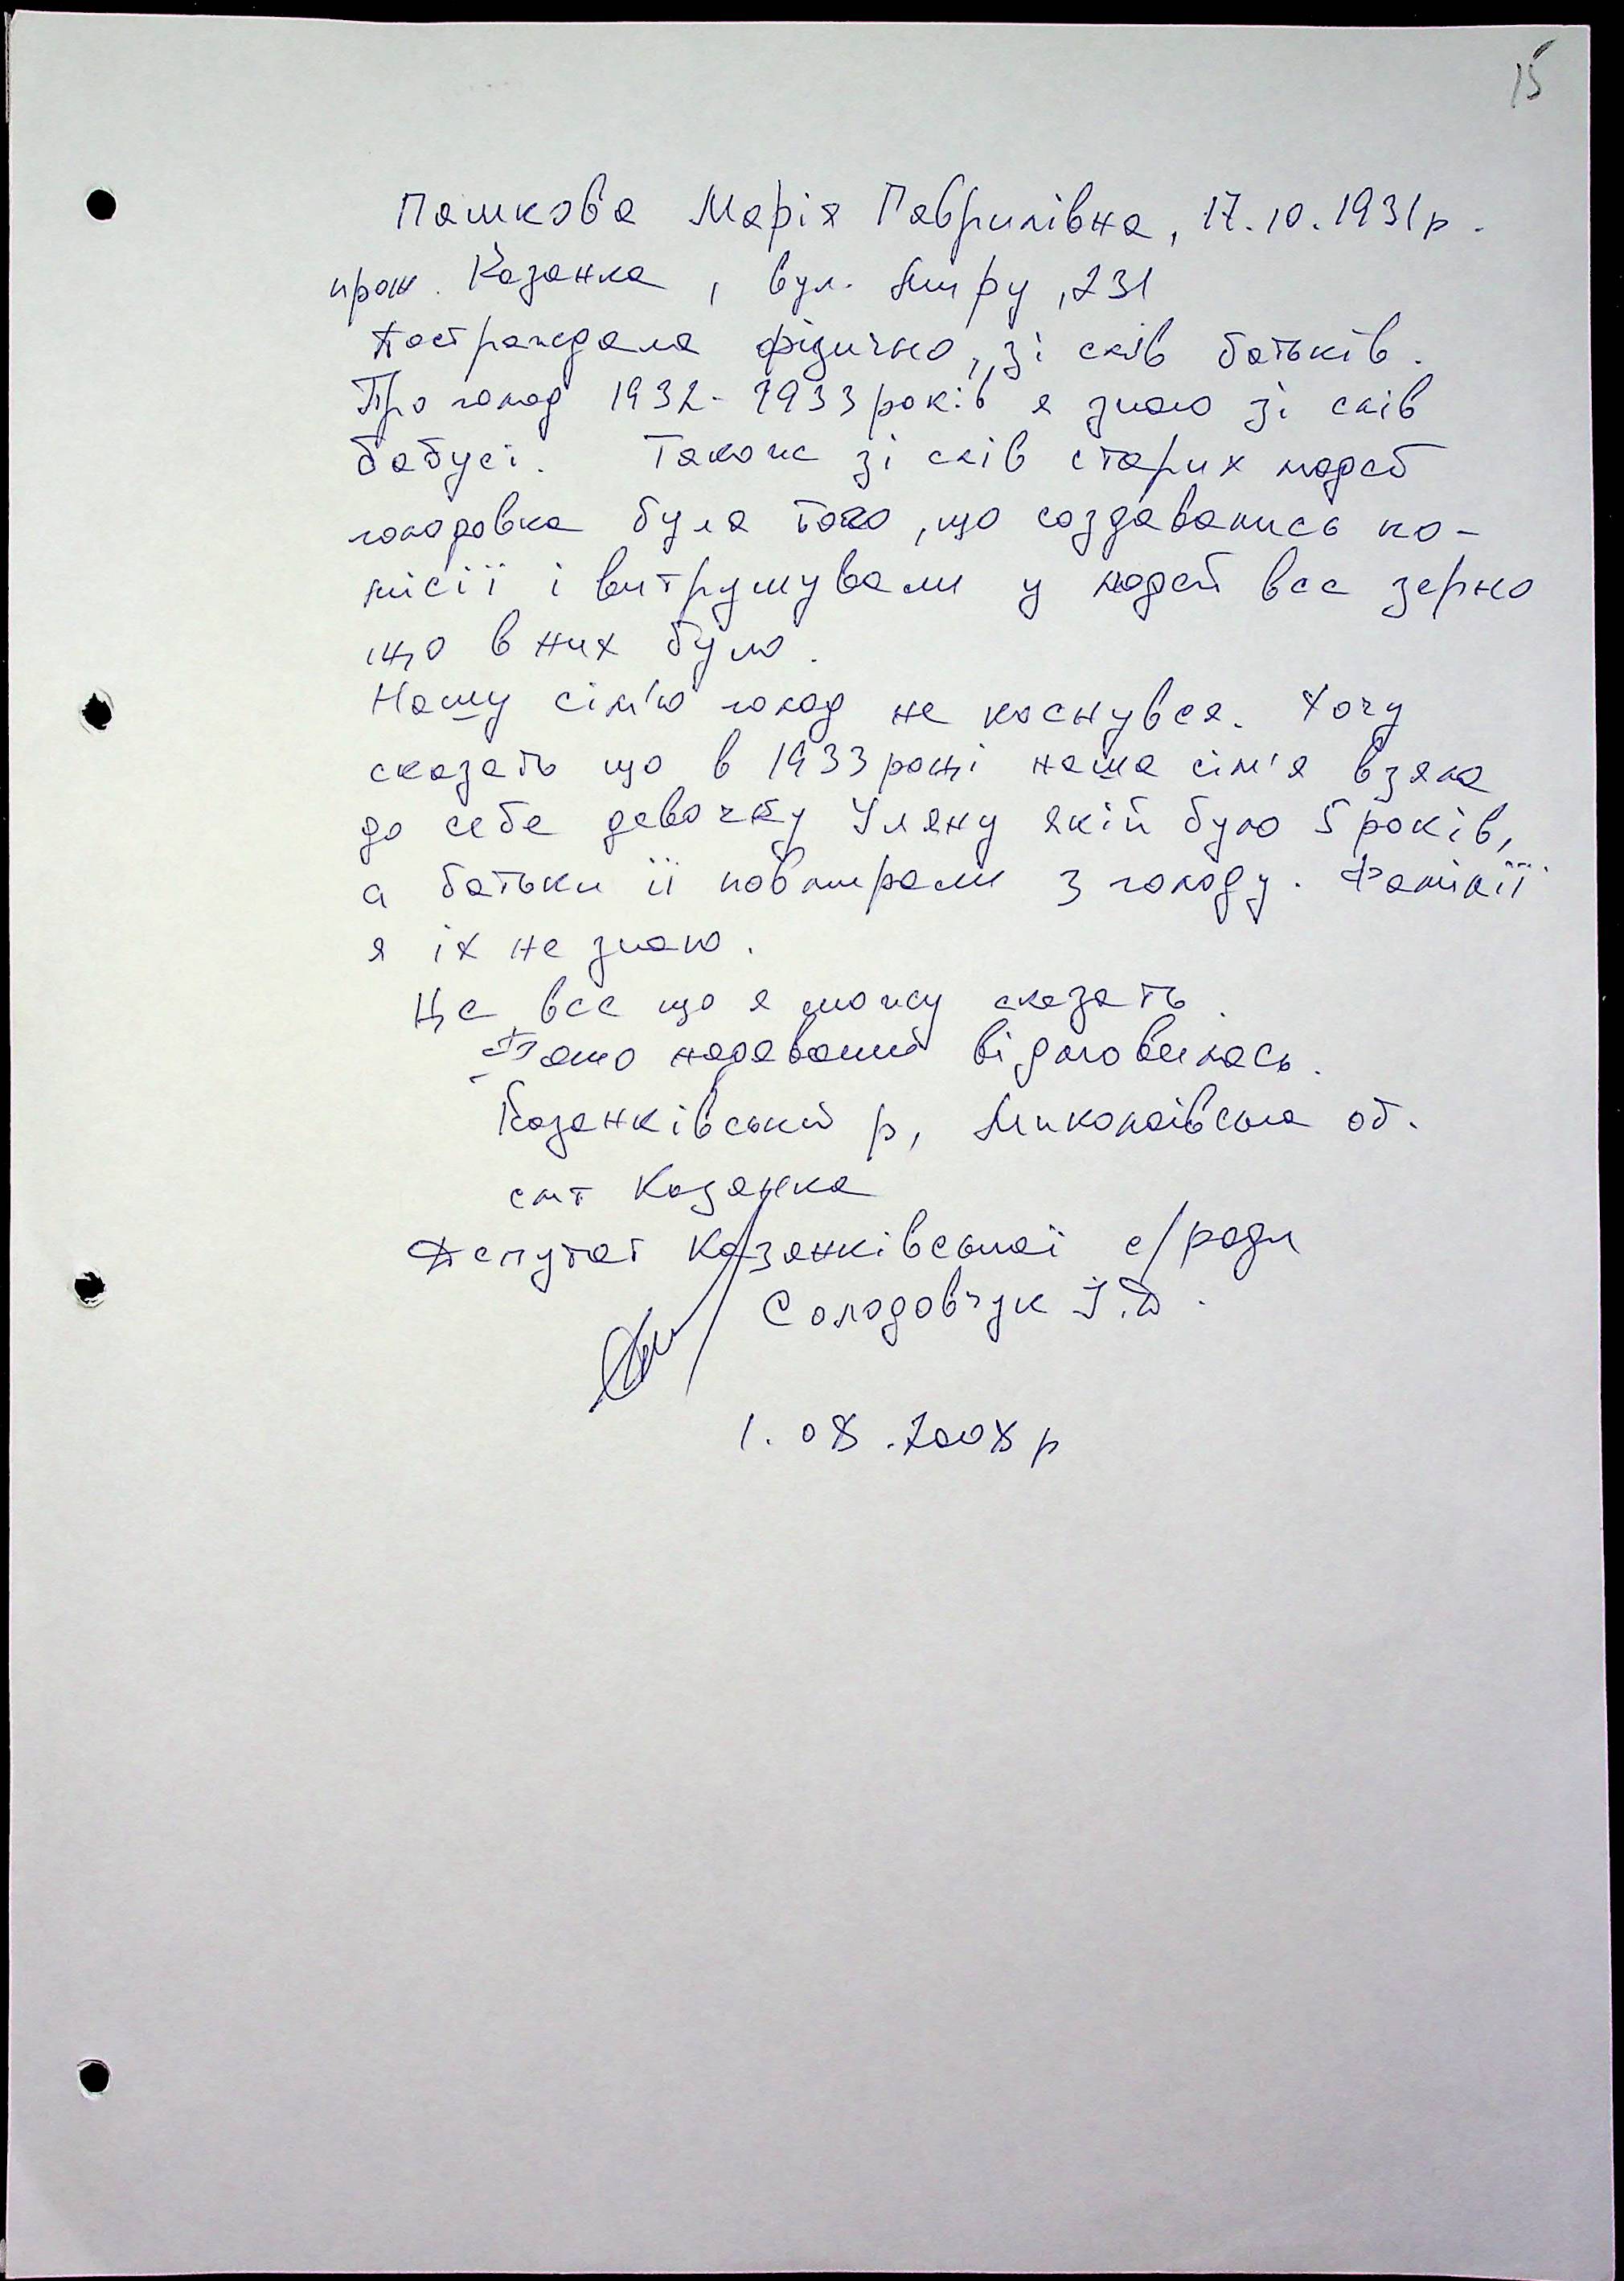 15
Пашкова Марія Гаврилівна, 17.10.1931р.
прож. Казанка, вул. Миру, 231
Постраждала фізично, зі слів батьків.
Про голод 1932-1933 років я знаю зі слів
бабусі. Також зі слів старих людей
голодовка була того, що создавались ко-
місії і витрушували у людей все зерно
що в них було.
Нашу сім'ю голод не коснувся. Хочу
сказать що в 1933 році наша сім'я взяла
до себе девочку Уляну якій було 5 років,
а батьки її повмирали з голоду. Фамілії
я їх не знаю.
Це все що я можу сказать.
Фото надавати відмовилась.
Казанківський р, Миколаївська об.
смт Казанка
Депутат Казанківської с/ради
Солодовчук І.Д.
1.08.2008 р